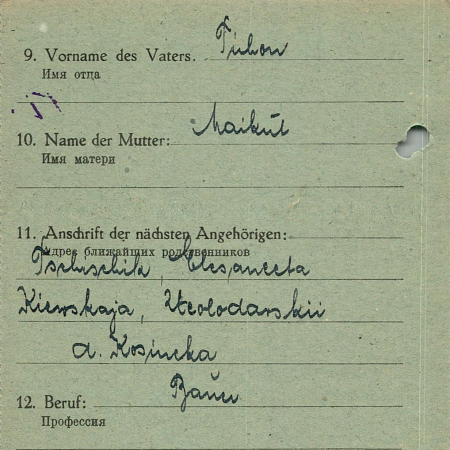 9. Vorname des Vaters. Tichon
Имя отца
10. Name der Mutter: Maikut
Имя матери
11. Anschrift der nächsten Angehörigen:
Адрес ближайших родственников
Kiewskaja,
d. Kosincka
12. Beruf: Bauer
Профессия